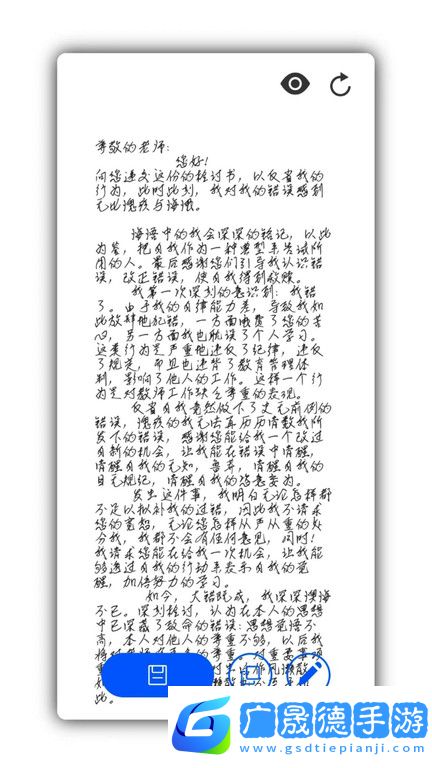 尊敬的老师:
您好!
向您递交这份的检讨书,以反省我的
行为,此时此刻,我对我的错误感到
无比愧疚与海澈。
海海中的我会深深的铭记,以此
为鉴,把自我作为一种典型来告诫所
用的人。最后感谢您们引导我认识错
误,改正错误,使自我得到救赎。
我第一次深刻的意识到:我错
了。由于我的自律能力差,导致我如
此放肆地犯错,一方面浪费了您的苦
心,另一方面我也耽误了个人学习。
这类行为是严重地违反了纪律,违反
了规定,而且也违背了教育管理体
制,影响了他人的工作。这样一个行
为是对教师工作缺乏尊重的表现。
反省自我竟然做下了史无前例的
错误,愧疚的我无法真历历清数我所
发下的错误,感谢您能给我一个改过
自新的机会,让我能在错误中清醒,
清醒自我的无知,鲁莽,清醒自我的
目无规纪,清醒自我的恣意妄为。
发生这件事,我明白无论怎样都
不足以拟补我的过错,因此我不请求
您的宽恕,无论您怎样从严从重的处
分我,我都不会有任何意见,同时!
我请求您能在给我一次机会,让我能
够透过自我的行动来表示自我的觉
醒,加倍努力的学习。
如今,大错既成,我深深懊悔
不已。深刻检讨,认为在本人的思想
中已深藏了致命的错误:思想觉悟不
高,本人对他人的尊重不够,以后我
此。
广晟德手游
www.gsdtiepianji.com